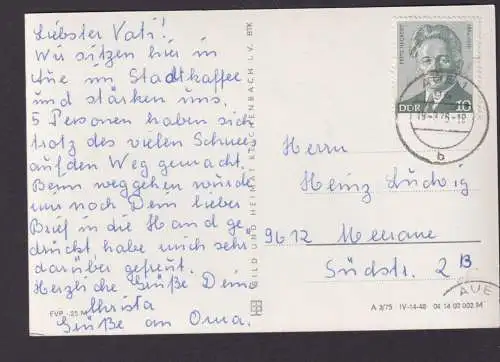 Liebster Vati!
Wir sitzen hier in
Aue im Stadtkaffee
und stärken uns.
5 Personen haben sich
trotz des vielen Schnee
auf den Weg gemacht.
Beim weggehen wurde
uns noch Dein lieber
Brief in die Hand ge
drückt, habe mich sehr
darüber gefreut.
Herzliche Grüße Deine
Christa
Grüße an Oma.
EVP -,25 M
BILD UND HEIMAT REICHENBACH I. V. BTK
DDR 10
b
Herrn
Heinz Ludwig
9612 Meerane
Südstr. 2B.
AUE
A 3/75 IV-14-48 04 14 02 002 M